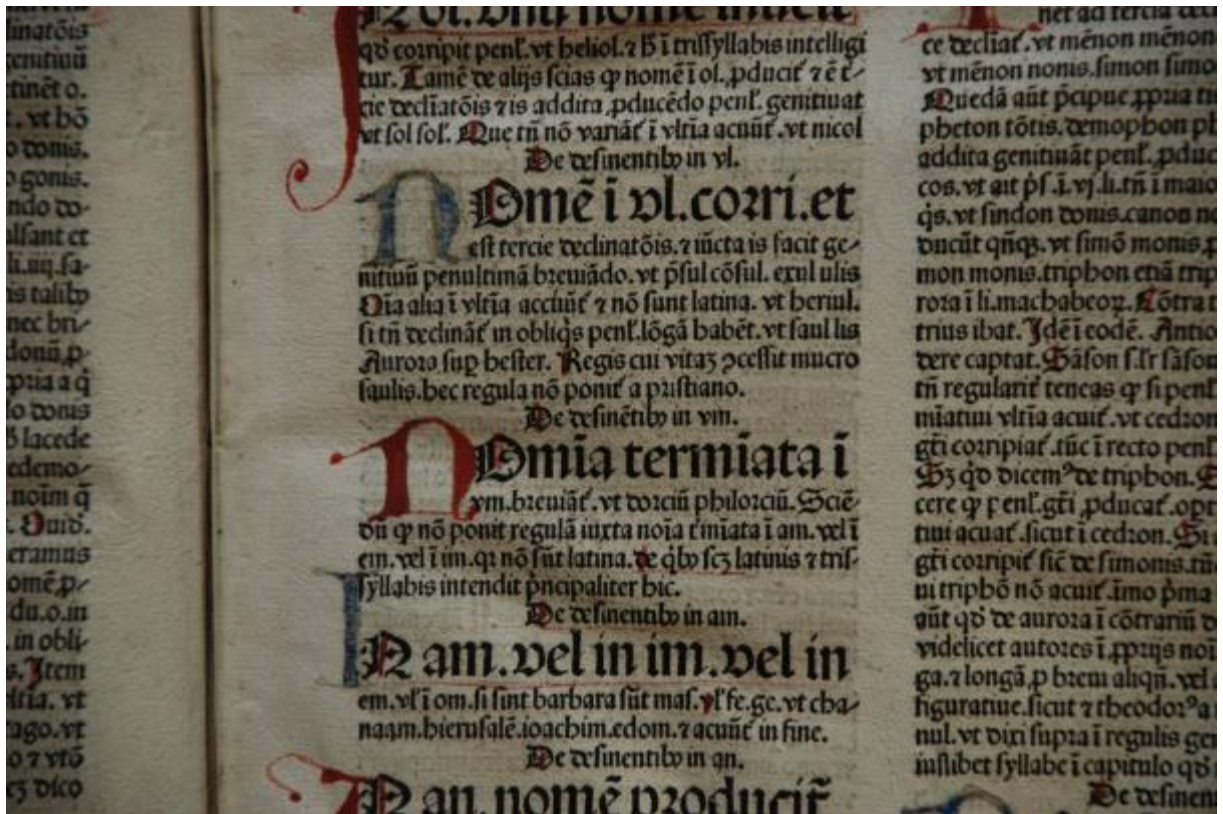 linatõis
genitiuũ
tinẽt o.
. vt bõ
o donis.
o gonis.
ndo do-
alfant et
li.iiij.fa-
is talibꝰ
nec bri-
donũ ꝓ-
pria a q̃
lo donis
lacede
edemo-
noim q̃
. Ouid.
eramus
omẽ ꝓ-
du.o.in
in obli-
s. Item
vltia. vt
ago. vt
o ⁊ vtõ
dico
N ol. vnũ nomẽ inuẽit
qđ corripit penł. vt heliol. ⁊ h̃ ĩ trissyllabis intelligi
tur. Tamẽ de alijs scias ꝙ nomẽ ĩ ol. ꝓducit̃ ⁊ ẽ t̃-
cie decliatõis ⁊ is addita ꝓducẽdo penł. genitiuat
vt sol sol̃. Que tñ nõ variãt̃ ĩ vltĩa acuũt̃. vt nicol
De desinentibꝰ in vl.
NOmẽ ĩ vl. corri. et
est tercie declinatõis. ⁊ iũcta is facit ge-
nitiuũ penultimã breuiãdo. vt p̃sul cõsul. exul ulis
Oĩa alia ĩ vltĩa accũũt̃ ⁊ nõ sunt latina. vt heriul.
si tñ declinãt̃ in obliq̃s penł. lõgã habẽt. vt saul lis
Aurora suꝑ hester. Regis cui vitaꝫ ↄcessit mucro
saulis. hec regula nõ ponit̃ a pristiano.
De desinẽtibꝰ in vm.
NOmĩa termĩata ĩ
vm. breuiãt̃. vt dorciũ philorciũ. Sciẽ-
dũ ꝙ nõ ponit regulã iuxta noĩa t̃mĩata ĩ am. vel ĩ
em. vel ĩ im. qꝛ nõ sũt latina. de q̃bꝰ scꝫ latinis ⁊ tris-
syllabis intendit p̃ncipaliter hic.
De desinentibꝰ in am.
IN am. vel in im. vel in
em. vł ĩ om. si sint barbara sũt mas. vł fe. ge. vt cha-
naam. hierusalẽ. ioachim. edom. ⁊ acuũt̃ in fine.
De desinentibꝰ in an.
IN an. nomẽ producit̃
net ad tercia
ce decliat̃. vt mẽnon mẽnon
vt mẽnon nonis. simon simo
Quedã aũt p̃cipue ꝓpria
pheton tõtis. demophon
addita genitiuãt penł. ꝓduc
cos. vt ait p̃s. ĩ. vj. li. tñ ĩ maio
q̃s. vt sindon donis. canon
ducũt qñqꝫ. vt simõ monis.
mon monis. triphon etiã trip
rora ĩ li. machabeoꝝ. Cõtra
trius ibat. Idẽ ĩ eodẽ. Antio
dere captat. Sãson s. lr̃ sãson
tñ regularit̃ teneas ꝙ si penł
miatiui vltĩa acuit̃. vt cedron
gt̃i corripiat̃. tũc ĩ recto penł
Sꝫ qđ dicemꝰ de triphon.
cere ꝙ p enł. gt̃i ꝓducat̃.
tiui acuat̃. sicut ĩ cedron. Si
gt̃i corripit̃ sic̃ de simonis. tũ
ui triphõ nõ acuit̃. ĩmo p̃ma
aũt qđ de aurora ĩ cõtrariũ
videlicet autores ĩ ꝓprijs noĩ
ga. ⁊ longã ꝓ breui aliqñ. vel
figuratiue. sicut ⁊ theodorꝰ a
nul. vt dixi supra ĩ regulis gen
iuslibet syllabe ĩ capitulo qđ
De desinen